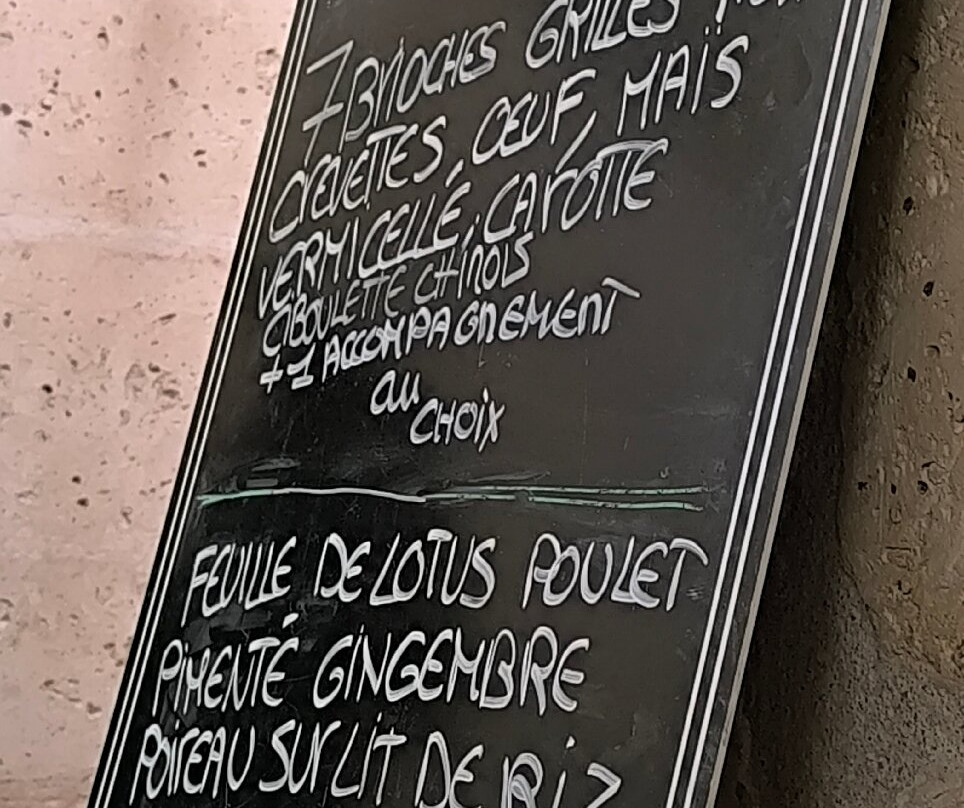 7 BRIOCHES GRILLES
CREVETTES, OEUF, MAÏS
VERMICELLÉ, CAROTTE
CIBOULETTE CHINOIS
+ 1 ACCOMPAGNEMENT
au
CHOIX
FEUILLE DE LOTUS POULET
PIMENTÉ GINGEMBRE
POIREAU SUR LIT DE RIZ